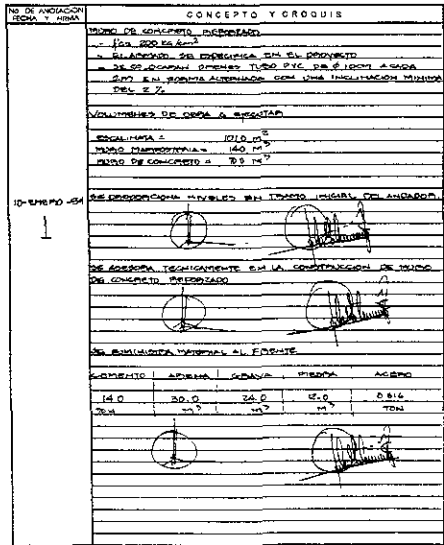 No. DE ANOTACION
FECHA Y FIRMA
CONCEPTO Y CROQUIS
MURO DE CONCRETO REFORZADO
- f'c= 200 kg/cm²
- EL ARMADO SE ESPECIFICA EN EL PROYECTO
- SE COLOCARAN DRENES TUBO PVC DE Ø 10CM A CADA
2M EN FORMA ALTERNADA CON UNA INCLINACION MINIMA
DEL 2 %
VOLUMENES DE OBRA A EJECUTAR
ESCALINATA = 101.0 M²
MURO MAMPOSTERIA = 140 M³
MURO DE CONCRETO = M³
10-ENERO-94
1
SE PROPORCIONA NIVELES EN TRAMO INICIAL DEL ANDADOR
SE ASESORA TECNICAMENTE EN LA CONSTRUCCION DE MURO
DE CONCRETO REFORZADO
SE SUMINISTRA MATERIAL AL FRENTE
CEMENTO ARENA GRAVA PIEDRA ACERO
14.0 30.0 24.0 12.0 0.616
TON M³ M³ M³ TON